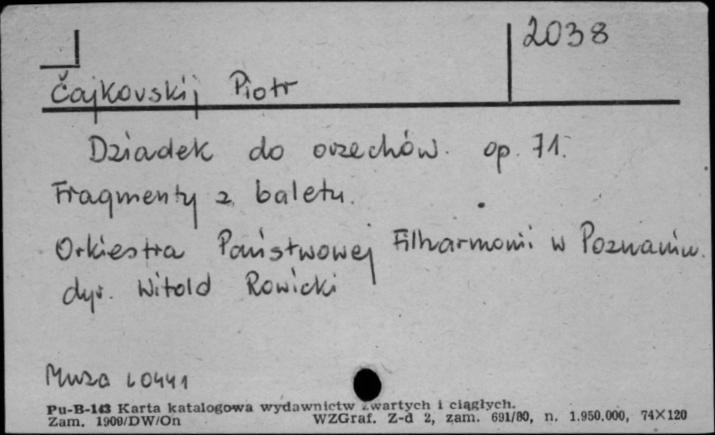 2038
Čajkovskij Piotr
Dziadek do orzechów. op. 71.
Fragmenty z baletu.
Orkiestra Państwowej Filharmonii w Poznaniu.
dyr. Witold Rowicki
Muza L0441
Pu-B-143 Karta katalogowa wydawnictw zwartych i ciągłych.
Zam. 1909/DW/On WZGraf. Z-d 2, zam. 691/80, n. 1.950.000, 74X120